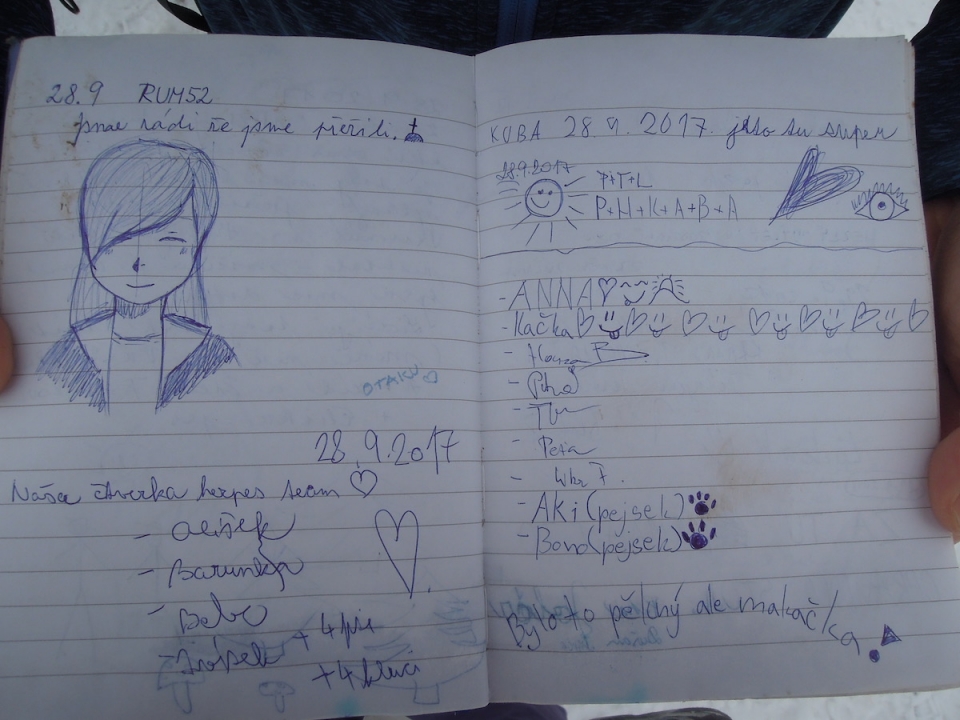 28.9 RUM52
Jsme rádi že jsme přežili.
OTAKU
28.9.2017
Naše čtverka herpes team
- Barunka
- Bebe
+ 4 psi
+ 4 kluci
KUBA 28.9.2017. je to tu super
28.9.2017
T+T+L
P+H+K+A+B+A
- ANNA
- Kačka
- Peťa
- Aki (pejsek)
- Bono (pejsek)
Bylo to pěkný ale makačka!